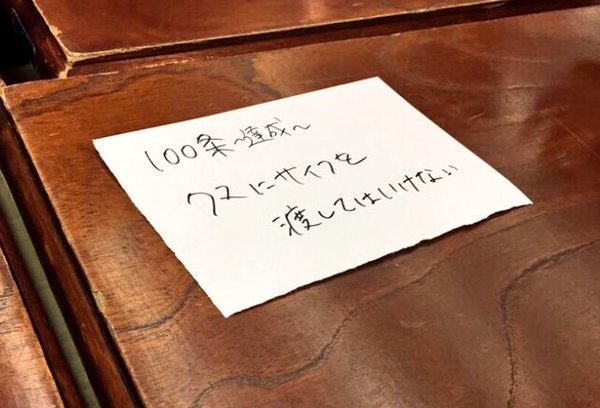 100条〜達成〜
クスにサイフを
渡してはいけない